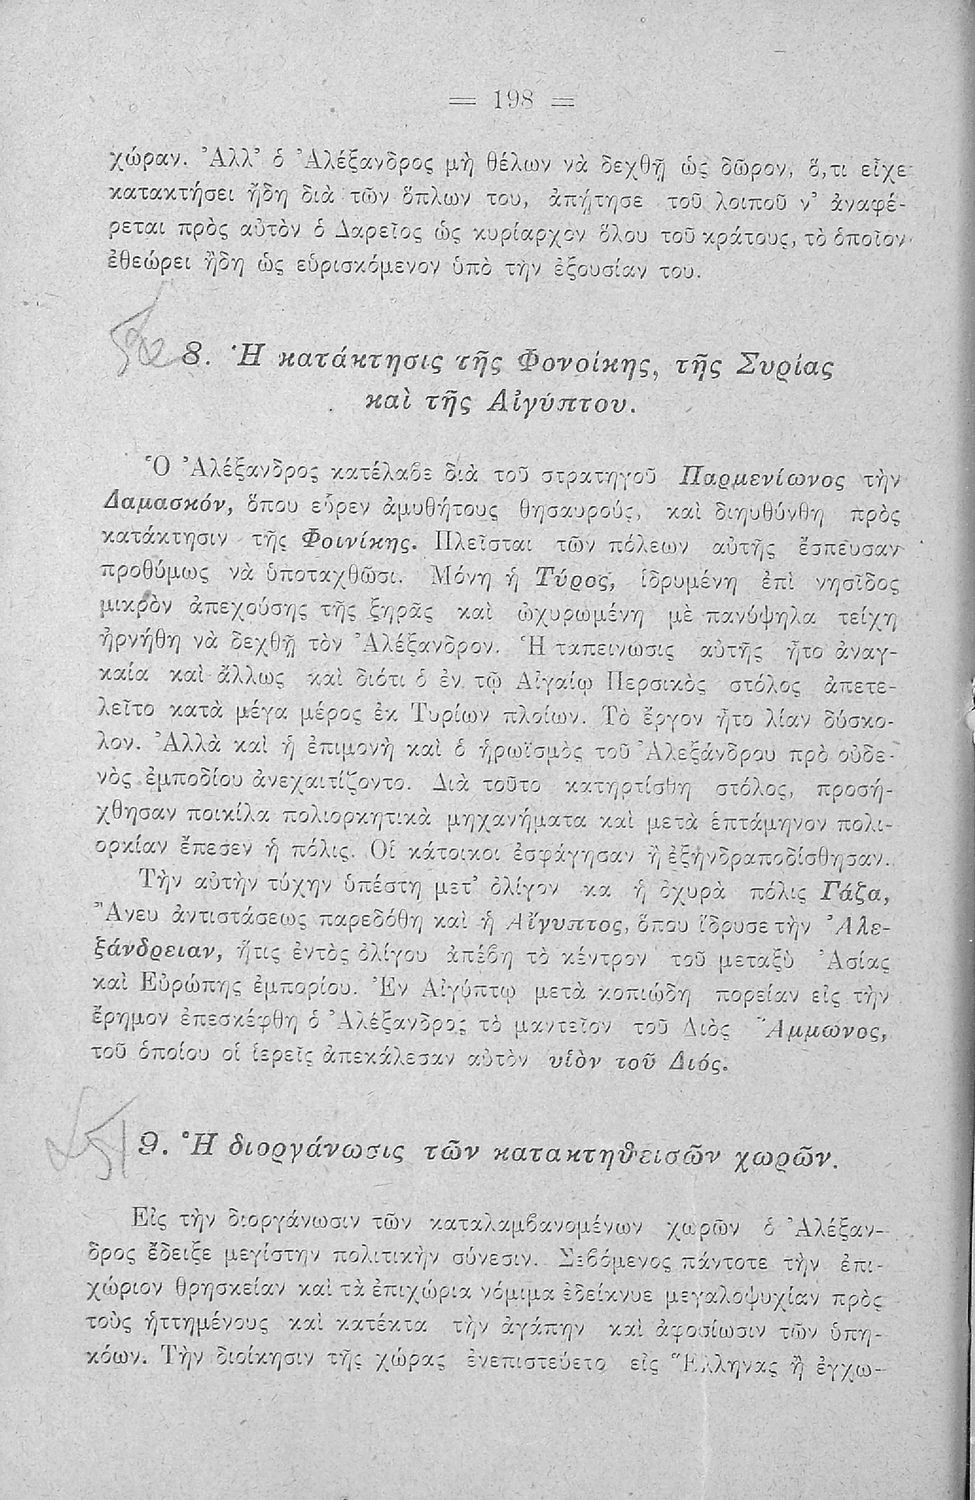 = 198 =
χώραν. Ἀλλ' ὁ Ἀλέξανδρος μὴ θέλων νὰ δεχθῇ ὡς δῶρον, ὅ,τι εἶχε
κατακτήσει ἤδη διὰ τῶν ὅπλων του, ἀπῄτησε τοῦ λοιποῦ ν' ἀναφέ-
ρεται πρὸς αὐτὸν ὁ Δαρεῖος ὡς κυρίαρχον ὅλου τοῦ κράτους, τὸ ὁποῖον
ἐθεώρει ἤδη ὡς εὑρισκόμενον ὑπὸ τὴν ἐξουσίαν του.
8. Ἡ κατάκτησις τῆς Φονοίκης, τῆς Συρίας
καὶ τῆς Αἰγύπτου.
Ὁ Ἀλέξανδρος κατέλαβε διὰ τοῦ στρατηγοῦ Παρμενίωνος τὴν
Δαμασκόν, ὅπου εὗρεν ἀμυθήτους θησαυρούς, καὶ διηυθύνθη πρὸς
κατάκτησιν τῆς Φοινίκης. Πλεῖσται τῶν πόλεων αὐτῆς ἔσπευσαν
προθύμως νὰ ὑποταχθῶσι. Μόνη ἡ Τύρος, ἱδρυμένη ἐπὶ νησῖδος
μικρὸν ἀπεχούσης τῆς ξηρᾶς καὶ ὠχυρωμένη μὲ πανύψηλα τείχη
ἠρνήθη νὰ δεχθῇ τὸν Ἀλέξανδρον. Ἡ ταπεινωσις αὐτῆς ἦτο ἀναγ-
καία καὶ ἄλλως καὶ διότι ὁ ἐν τῷ Αἰγαίῳ Περσικὸς στόλος ἀπετε-
λεῖτο κατὰ μέγα μέρος ἐκ Τυρίων πλοίων. Τὸ ἔργον ἦτο λίαν δύσκο-
λον. Ἀλλὰ καὶ ἡ ἐπιμονὴ καὶ ὁ ἡρωϊσμὸς τοῦ Ἀλεξάνδρου πρὸ οὐδε-
νὸς ἐμποδίου ἀνεχαιτίζοντο. Διὰ τοῦτο κατηρτίσθη στόλος, προσή-
χθησαν ποικίλα πολιορκητικὰ μηχανήματα καὶ μετὰ ἑπτάμηνον πολι-
ορκίαν ἔπεσεν ἡ πόλις. Οἱ κάτοικοι ἐσφάγησαν ἢ ἐξηνδραποδίσθησαν.
Τὴν αὐτὴν τύχην ὑπέστη μετ' ὀλίγον κα ἡ ὀχυρὰ πόλις Γάζα,
Ἄνευ ἀντιστάσεως παρεδόθη καὶ ἡ Αἴγυπτος, ὅπου ἵδρυσε τὴν Ἀλε-
ξάνδρειαν, ἥτις ἐντὸς ὀλίγου ἀπέβη τὸ κέντρον τοῦ μεταξὺ Ἀσίας
καὶ Εὐρώπης ἐμπορίου. Ἐν Αἰγύπτῳ μετὰ κοπιώδη πορείαν εἰς τὴν
ἔρημον ἐπεσκέφθη ὁ Ἀλέξανδρος τὸ μαντεῖον τοῦ Διὸς Ἄμμωνος,
τοῦ ὁποίου οἱ ἱερεῖς ἀπεκάλεσαν αὐτὸν υἱὸν τοῦ Διός.
9. Ἡ διοργάνωσις τῶν κατακτηθεισῶν χωρῶν.
Εἰς τὴν διοργάνωσιν τῶν καταλαμβανομένων χωρῶν ὁ Ἀλέξαν-
δρος ἔδειξε μεγίστην πολιτικὴν σύνεσιν. Σεβόμενος πάντοτε τὴν ἐπι-
χώριον θρησκείαν καὶ τὰ ἐπιχώρια νόμιμα ἐδείκνυε μεγαλοψυχίαν πρὸς
τοὺς ἡττημένους καὶ κατέκτα τὴν ἀγάπην καὶ ἀφοσίωσιν τῶν ὑπη-
κόων. Τὴν διοίκησιν τῆς χώρας ἐνεπιστεύετο εἰς Ἕλληνας ἢ ἐγχω-